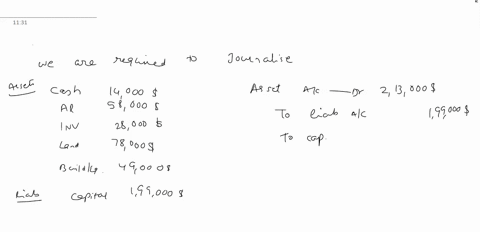 11:31
we are required to Journalise
Assets Cash 14,000 $
AR 58,000 $
INV 28,000 $
Land 78,000 $
Buildg. 49,000 $
Liab Capital 1,99,000 $
Asset A/c — Dr 2,13,000 $
To Liab A/c 1,99,000 $
To cap.